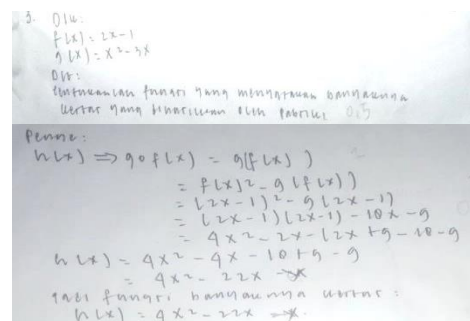 3. Dik:
f(x) = 2x-1
g(x) = x²-3x
Dit:
tentukanlah fungsi yang menyatakan banyaknya
kertas yang dihasilkan oleh pabrik! 0,5
Penye:
h(x) ⇒ gof(x) = g(f(x))
= f(x)²-9(f(x))
= (2x-1)²-9(2x-1)
= (2x-1)(2x-1)-18x-9
= 4x²-2x-(2x+9-18-9
h(x) = 4x²-4x-18+9-9
= 4x²-22x
Jadi fungsi banyaknya kertas:
h(x) = 4x²-22x